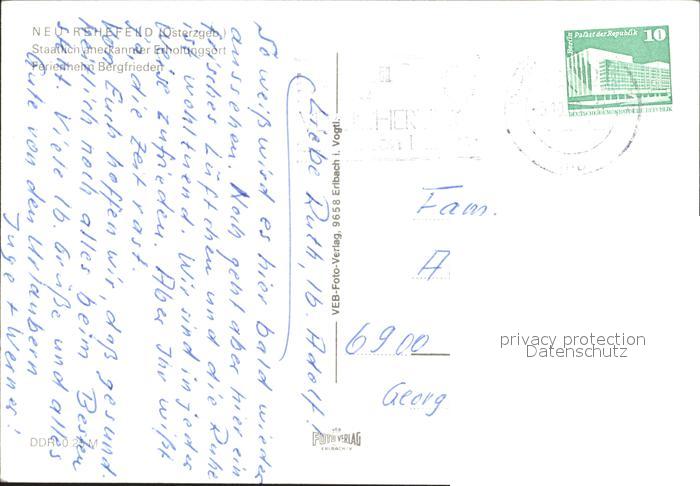 NEU-REHEFELD (Osterzgeb.)
Staatlich anerkannter Erholungsort
Ferienheim Bergfrieden
Liebe Ruth, lb. Adolf!
So weiß wird es hier bald wieder
aussehen. Noch geht aber hier ein
frisches Lüftchen und die Ruhe
ist wohltuend. Wir sind in jeder
Weise zufrieden. Aber Ihr wißt
ja die Zeit rast.
Von Euch hoffen wir, daß gesund-
heitlich noch alles beim Besten
steht. Viele lb. Grüße und alles
Gute von den Urlaubern
Inge + Werner!
VEB-Foto-Verlag, 9658 Erlbach i. Vogtl.
Berlin Palast der Republik 10
Fam.
A
6900
Georg
privacy protection
Datenschutz
VEB
FOTO VERLAG
ERLBACH/V
DDR 0.20 M